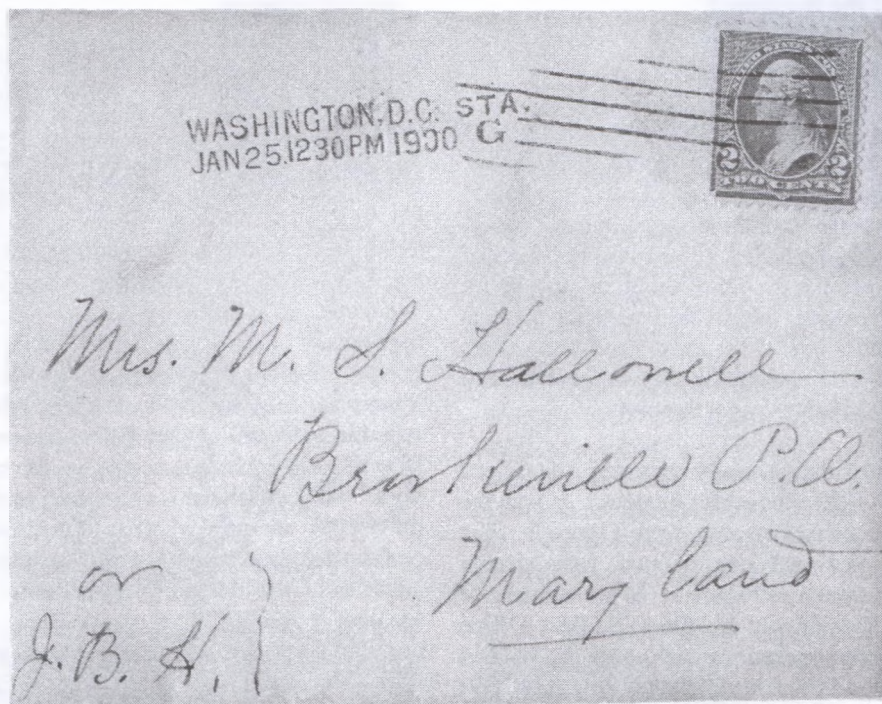 WASHINGTON, D.C. STA.
JAN 25.1230PM 1900 G
UNITED STATES
2 2
TWO CENTS
Mrs. M. S. Hallowell
Brookeville P.O.
Maryland
or
J. B. H.